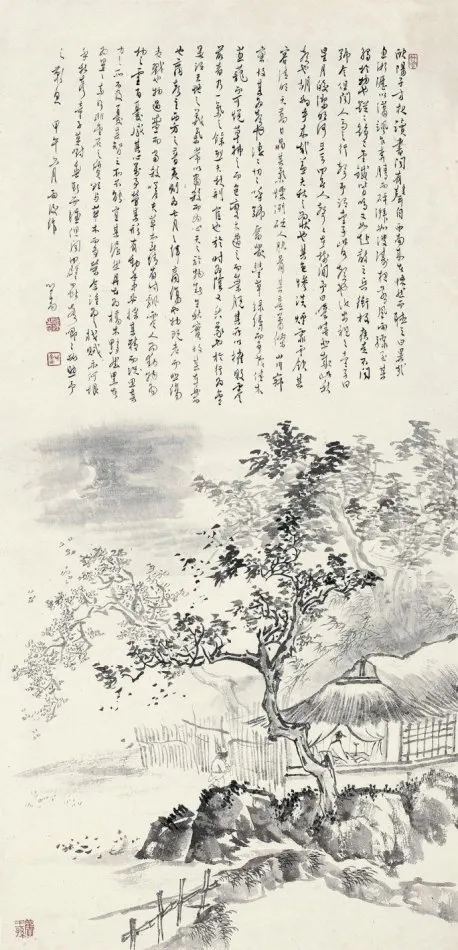 歐陽子方夜讀書聞有聲自西南來者悚然而聽之曰異哉
初淅瀝以蕭颯忽奔騰而砰湃如波濤夜驚風雨驟至其
觸於物也鏦鏦錚錚金鐵皆鳴又如赴敵之兵銜枚疾走不聞
號令但聞人馬之行聲予謂童子此何聲也汝出視之童子曰
星月皎潔明河在天四無人聲聲在樹間予曰噫嘻悲哉此秋
聲也胡為乎來哉蓋夫秋之為狀也其色慘淡煙霏雲斂其
容清明天高日晶其氣慄冽砭人肌骨其意蕭條山川寂
寥故其為聲也淒淒切切呼號奮發豐草綠縟而爭茂佳木
蔥蘢而可悅草拂之而色變木遭之而葉脫其所以摧敗零
落者乃一氣之餘烈夫秋刑官也於時為陰又兵象也於行為金
是謂天地之義氣常以肅殺而為心天之於物春生秋實故其在樂
也商聲主西方之音夷則為七月之律商傷也物既老而悲傷
夷戮也物過盛而當殺嗟夫草木無情有時飄零人為動物惟
物之靈百憂感其心萬事勞其形有動乎中必搖其精而況思其
力之所不及憂其智之所不能宜其渥然丹者為槁木黟然黑者
為星星奈何非金石之質欲與草木而爭榮念誰為之戕賊亦何恨
乎秋聲童子莫對垂頭而睡但聞四壁蟲聲唧唧如助予
之歎息 甲午六月雨後 心畬